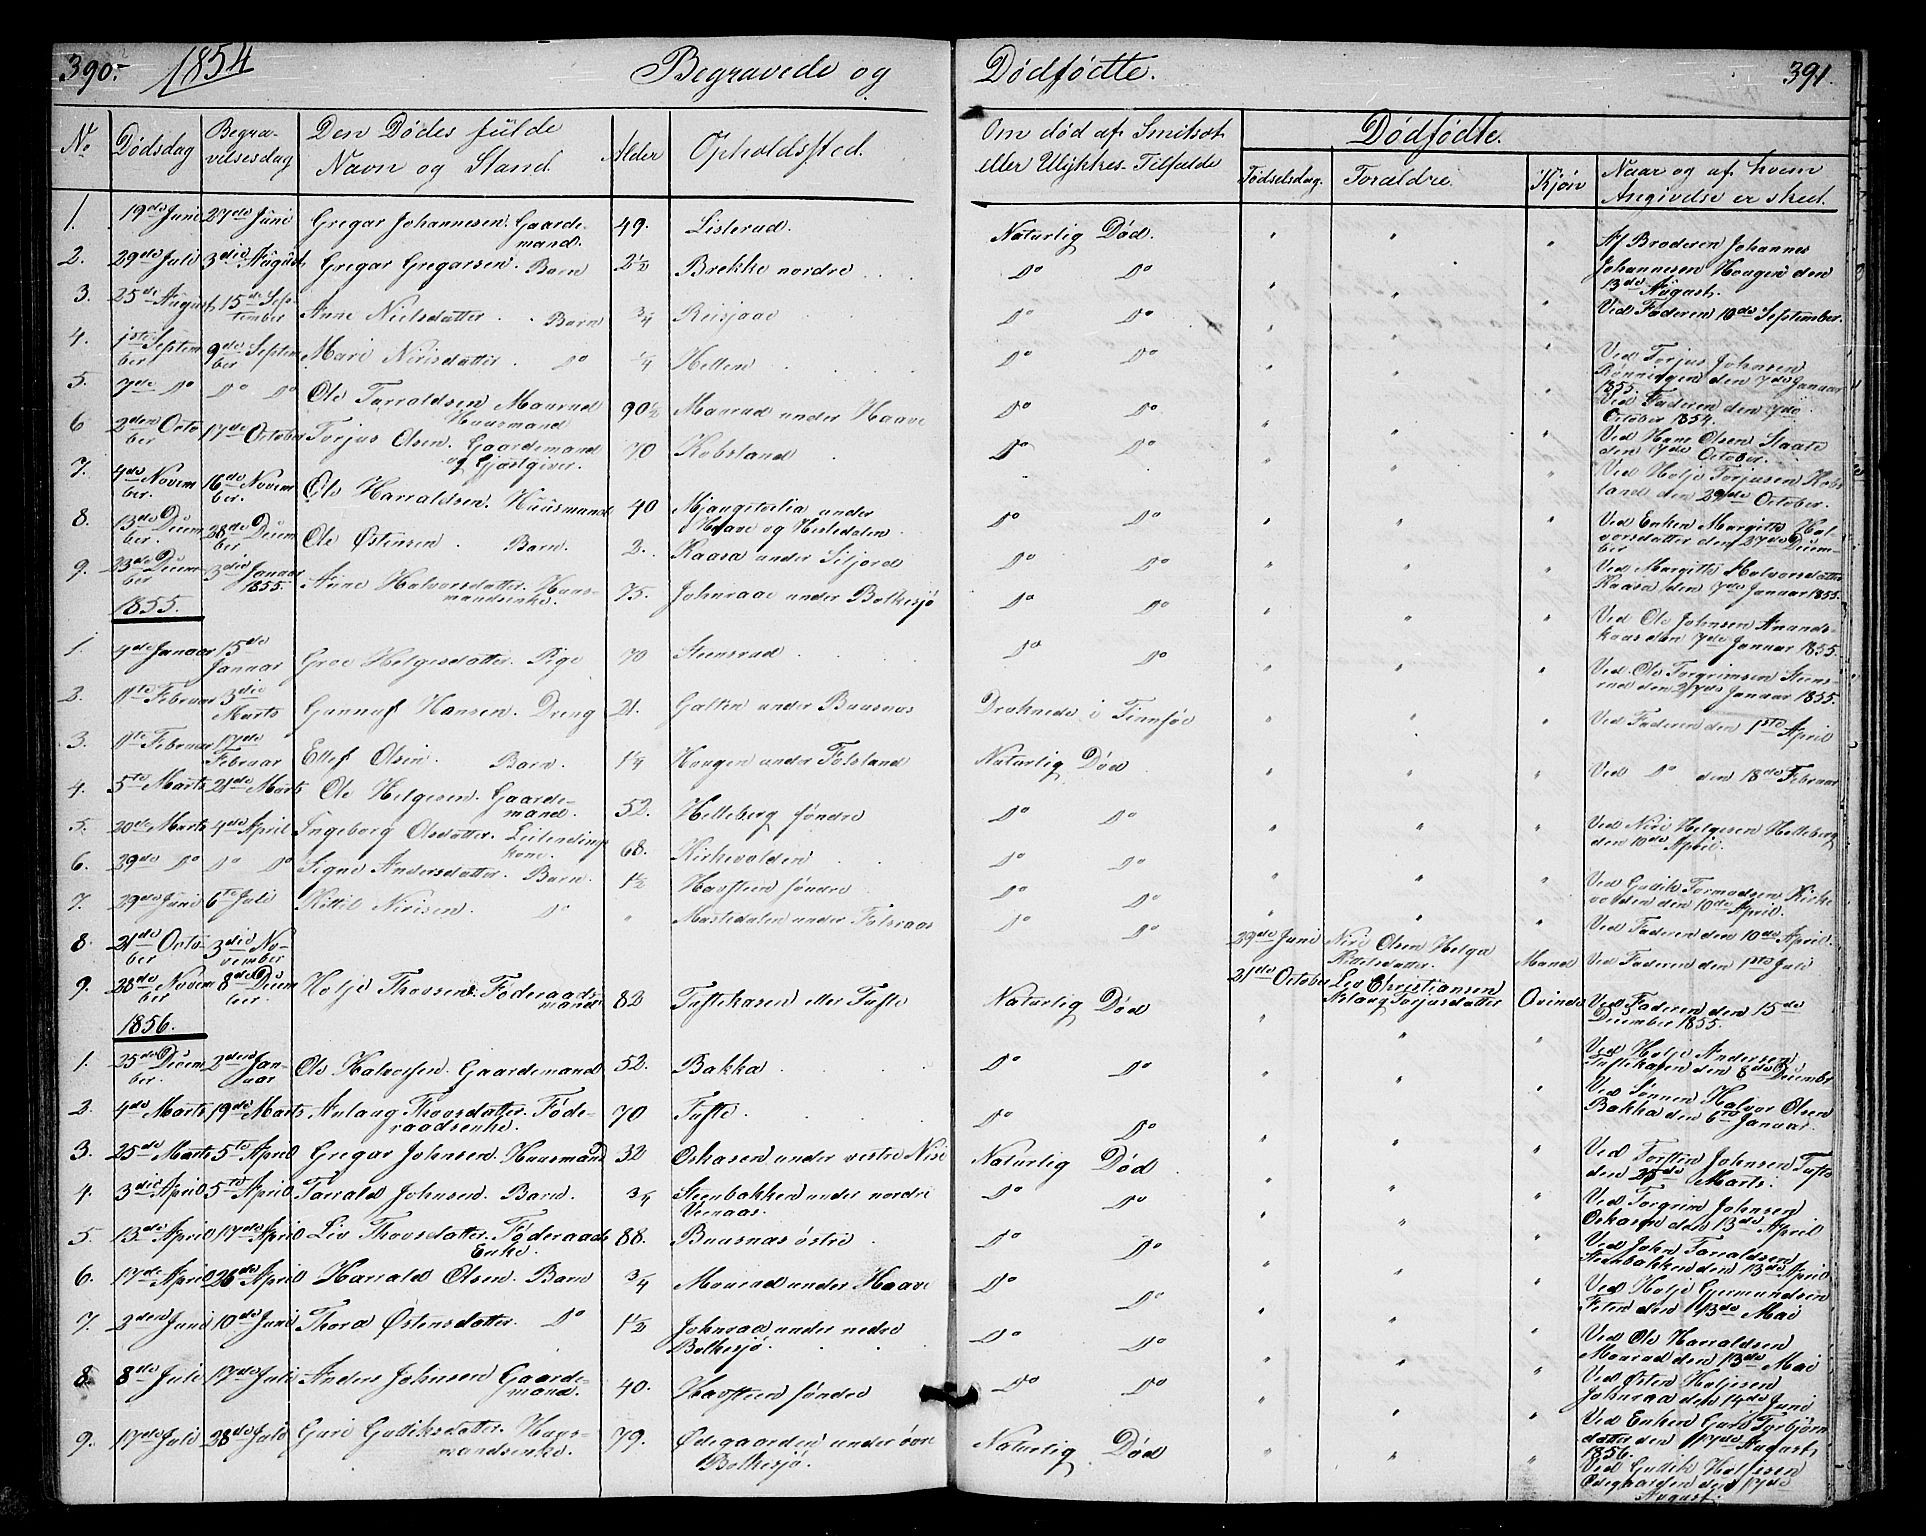 390.- 1854 Begravede og Dødfødte. 391.
No Dødsdag Begravelsesdag Den Dødes fulde Navn og Stand. Alder Opholdssted. Om død af Smitsot eller Ulykkes-Tilfælde Dødfødte.
Fødselsdag. Forældre. Kjøn Naar og af hvem Angivelse er skeed.
1. 19de Juni 27de Juni Gregar Johannesen. Gaardemand. 49. Listerud. Naturlig Død. " " " Af Broderen Johannes Johannesen Haugen den 13de August.
2. 29de Juli 3die August Gregar Gregarsen. Barn 2½ Brekke nordre Do Do " " " Ved Faderen 10de September.
3. 25de August 15de September Anne Nielsdatter. Barn ¾ Reisjaae Do Do " " " Ved Torjus Johnsen Rønningen den 7de Januar 1855.
4. 1ste September 9de September Mari Nirisdatter Do ¼ Hellem Do Do " " " Ved Faderen den 7de October 1854.
5. 7de Do Do Do Ole Tarraldsen Maurud Huusmand 90½ Maurud under Haave Do Do " " " Ved Hans Olsen Staate den 7de October.
6 2den October 17de October Torjus Olsen. Gaardemand og Gjæstgiver. 70 Kobsland Do Do " " " Ved Holje Torjusen Kobsland den 29de October.
7. 4de November. 16de November. Ole Harraldsen. Huusmand 40 Mjaugstœlia under Haave og Hesledalen Do Do " " " Ved Enken Margitte Halvorsdatter den 27de December
8. 13de December. 28de December Ole Østensen. Barn. 2. Kaasa under Siljord Do Do " " " Ved Margitte Halvorsdatter Kaasa den 7de Januar 1855.
9. 23de December 3die Januar 1855. Anne Halvorsdatter. Huusmandsenke. 75. Johnraae under Bolkesjø Do Do " " " Ved Ole Johnsen Anandskaas den 7de Januar 1855.
1855.
1. 4de Januar 15de Januar Groe Helgesdatter. Pige 70 Steensrud Do Do " " " Ved Ole Torgrimsen Steensrud den 27de Januar 1855.
2. 11te Februar 3die Marts Gunnuf Hansen. Dreng 21. Galten under Buusnæs Druknede i Tinnsøe " " " Ved Faderen den 1ste April
3. 11te Februar 17de Februar Ellef Olsen. Barn. 1¼ Haugen under Folsland Naturlig Død " " " Ved Do den 18de Februar
4. 5te Marts 21de Marts Ole Helgesen. Gaardemand. 52. Helleberg søndre Do Do " " " Ved Niri Helgesen Helleberg den 10de April.
5. 20de Marts 4de April Ingeborg Olsdatter. Leilendingskone. 68. Kirkevolden Do Do " " " Ved Gutik Tormodsen Kirkevolden den 10de April.
6. 29de Do Do Do Signe Andersdatter. Barn. 1½ Havsteen søndre Do Do " " " Ved Faderen den 10de April.
7. 29de Juni 6te Juli Kittil Nirisen. Do " Mastedalen under Folseraas Do Do 22de Juni Niri Olsen Helga Kittelsdatter. Mand Ved Faderen den 1ste Juli
8. 21de October 3die November 21de October Leiv Christiansen Aslaug Torjusdatter Qvinde Ved Faderen den 15de December 1855.
9. 28de November 8de December. Holje Thovsen. Føderaadsmand 82 Tuftekasen eller Tufte Naturlig Død " " " Ved Holje Andersen Tuftekasen den 8de December
1856.
1. 25de December. 2den Januar Ole Halvorsen. Gaardemand 52. Bakka Do Do " " " Ved Sønnen Halvor Olsen Bakka den 6te Januar.
2. 4de Marts 19de Marts Aslaug Thovsdatter. Føderaadsenke. 70 Tufte Do Do " " " Ved Torsten Johnsen Tufte den 25de Marts.
3. 25de Marts 5te April Gregar Johnsen. Huusmand 32 Oskasen under vestre Nisi Naturlig Død " " " Ved Torgrim Johnsen Oskasen den 13de April
4. 3die April 5te April Tarrald Johnsen. Barn. ¾ Steenbakken under nordre Veenaas. Do Do " " " Ved John Tarraldsen Steenbakken den 13de April
5. 13de April 17de April Liv Thovsdatter. Føderaads Enke. 88. Buusnæs østre Do Do " " " Ved Holje Germundsen Feten den 13de Mai
6. 17de April 26de April Harrald Olsen. Barn ¾ Maurud under Haave Do Do " " " Ved Ole Harraldsen Maurud den 13de Mai
7. 2den Juni 10de Juni Thora Østensdatter. Do 1½ Johnraa under nedre Bolkesjø Do Do " " " Ved Østen Holjesen Johnraa den 14de Juni
8. 8de Juli 17de Juli Anders Johnsen Gaardemand. 40. Havsteen søndre Do Do " " " Ved Enken Guro Torbjørnsdatter den 17de August 1856.
9. 17de Juli 28de Juli Guri Gutiksdatter. Huusmandsenke. 79. Ødegaarden under øvre Bolkesjø. Naturlig Død " " " Ved Gutik Holjesen Ødegaarden den 17de August.